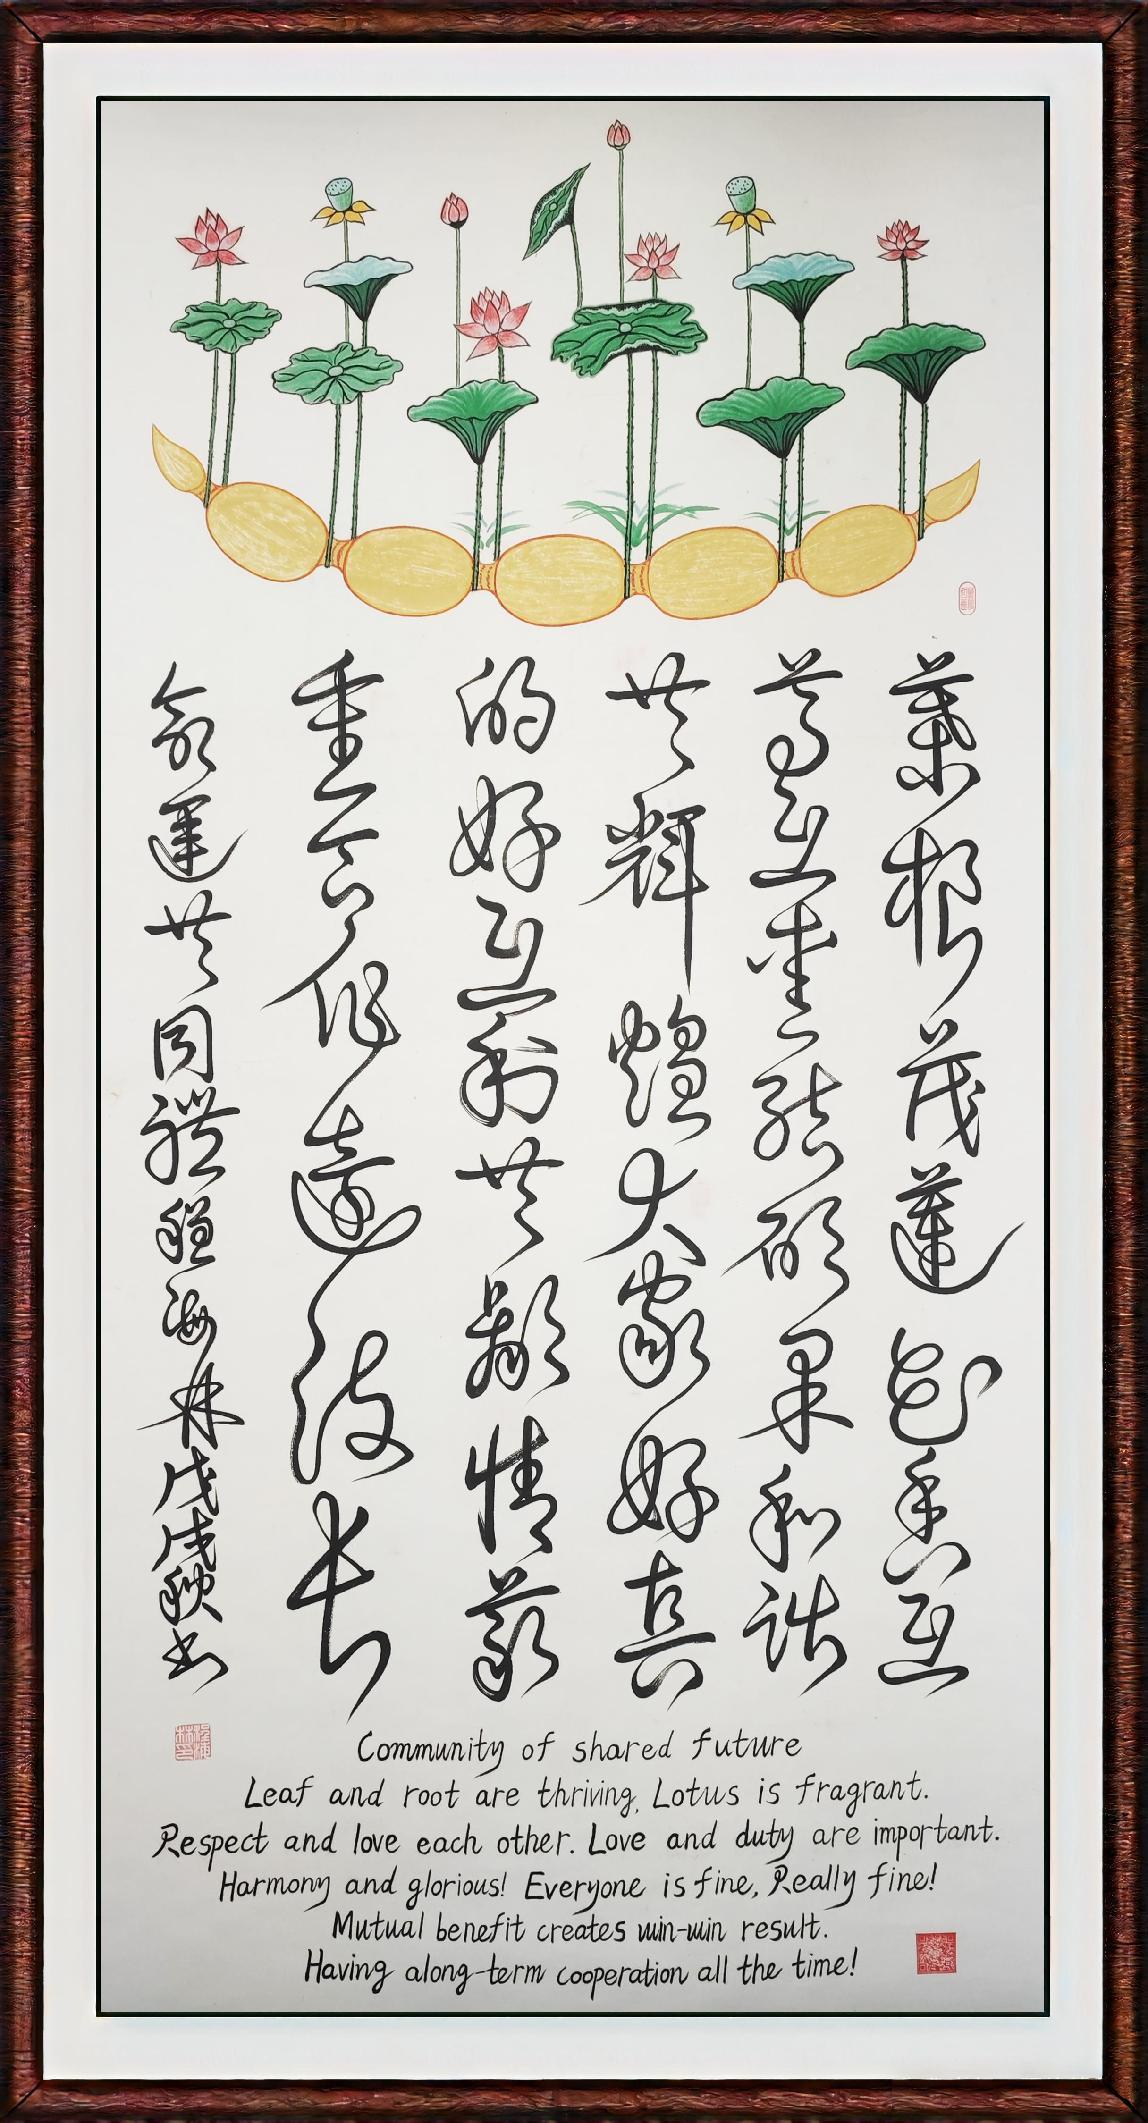 葉根茂蓮花香互
尊互愛結碩果和諧
共輝煌大家好真
的好互利共贏情義
重合作遠流长
命運共同體程海林戊戌秋书
Community of shared future
Leaf and root are thriving, Lotus is fragrant.
Respect and love each other. Love and duty are important.
Harmony and glorious! Everyone is fine, Really fine!
Mutual benefit creates win-win result.
Having along-term cooperation all the time!